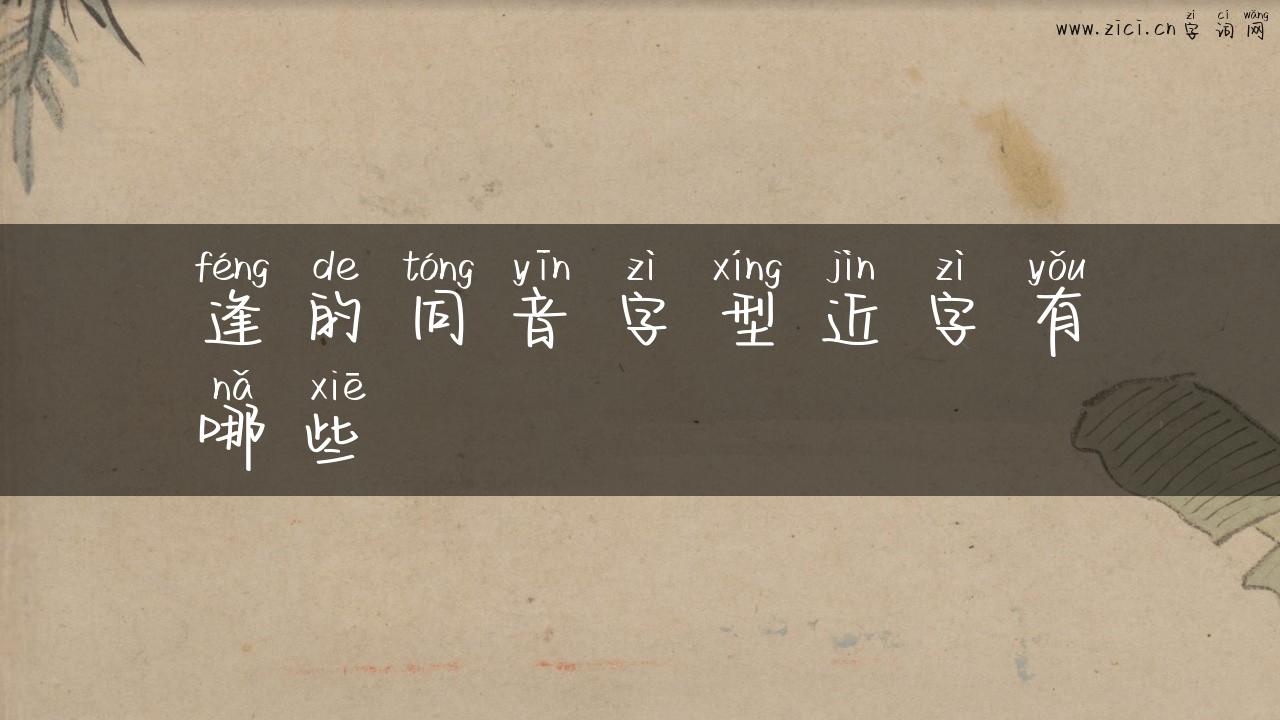 zì cí wǎng
www.zici.cn 字词网
féng de tóng yīn zì xíng jìn zì yǒu
逢的同音字型近字有
nǎ xiē
哪些